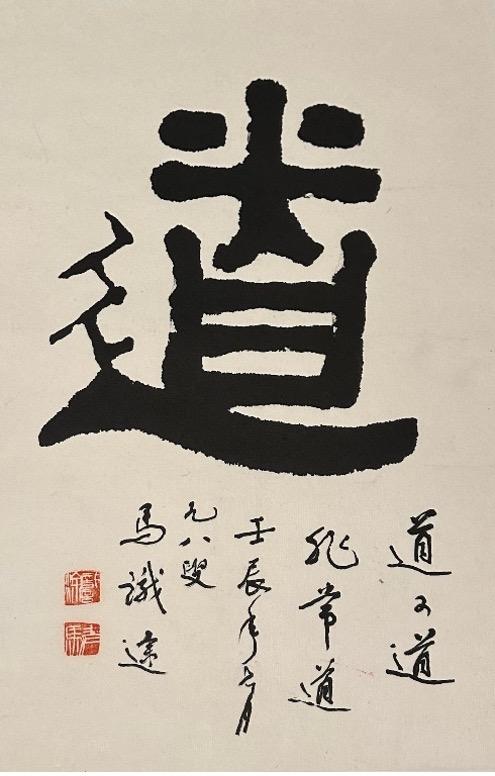 道
道可道
非常道
壬辰年月
九八叟
馬識途